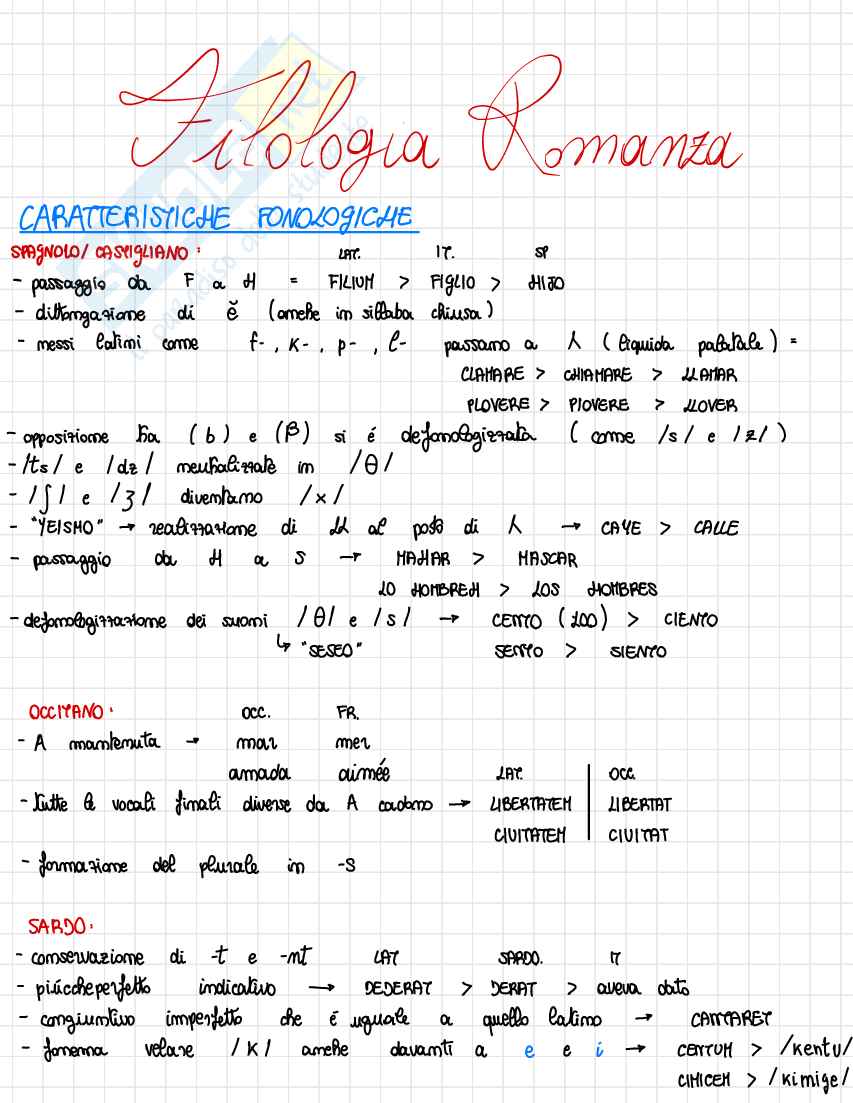 Filologia Romanza
CARATTERISTICHE FONOLOGICHE
SPAGNOLO/ CASTIGLIANO: LAT. IT. SP
- passaggio da F a H = FILIUM > FIGLIO > HIJO
- dittongazione di ĕ (anche in sillaba chiusa)
- nessi latini come f-, k-, p-, l- passano a λ (liquida palatale) =
CLAMARE > CHIAMARE > LLAMAR
PLOVERE > PIOVERE > LLOVER
- opposizione tra (b) e (β) si é defonologizzata (come /s/ e /z/)
- /ts/ e /dz/ neutralizzate in /θ/
- /ʃ/ e /ʒ/ diventano /x/
- "YEISMO" → realizzazione di LL al posto di λ → CAYE > CALLE
- passaggio da H a S → MAHAR > MASCAR
LO HOMBREH > LOS HOMBRES
- defonologizzazione dei suoni /θ/ e /s/ → CENTO (100) > CIENTO
↳ "SESEO" SENTO > SIENTO
OCCITANO: OCC. FR.
- A mantenuta → mar mer
amada aimée LAT. OCC.
- tutte le vocali finali diverse da A cadono → LIBERTATEM LIBERTAT
CIVITATEM CIVITAT
- formazione del plurale in -S
SARDO:
- conservazione di -t e -nt LAT SARDO. IT
- piúccheperfetto indicativo → DEDERAT > DERAT > aveva dato
- congiuntivo imperfetto che é uguale a quello latino → CANTARET
- fonenna velare /K/ anche davanti a e e i → CENTUM > /Kentu/
CIMICEM > /Kimige/